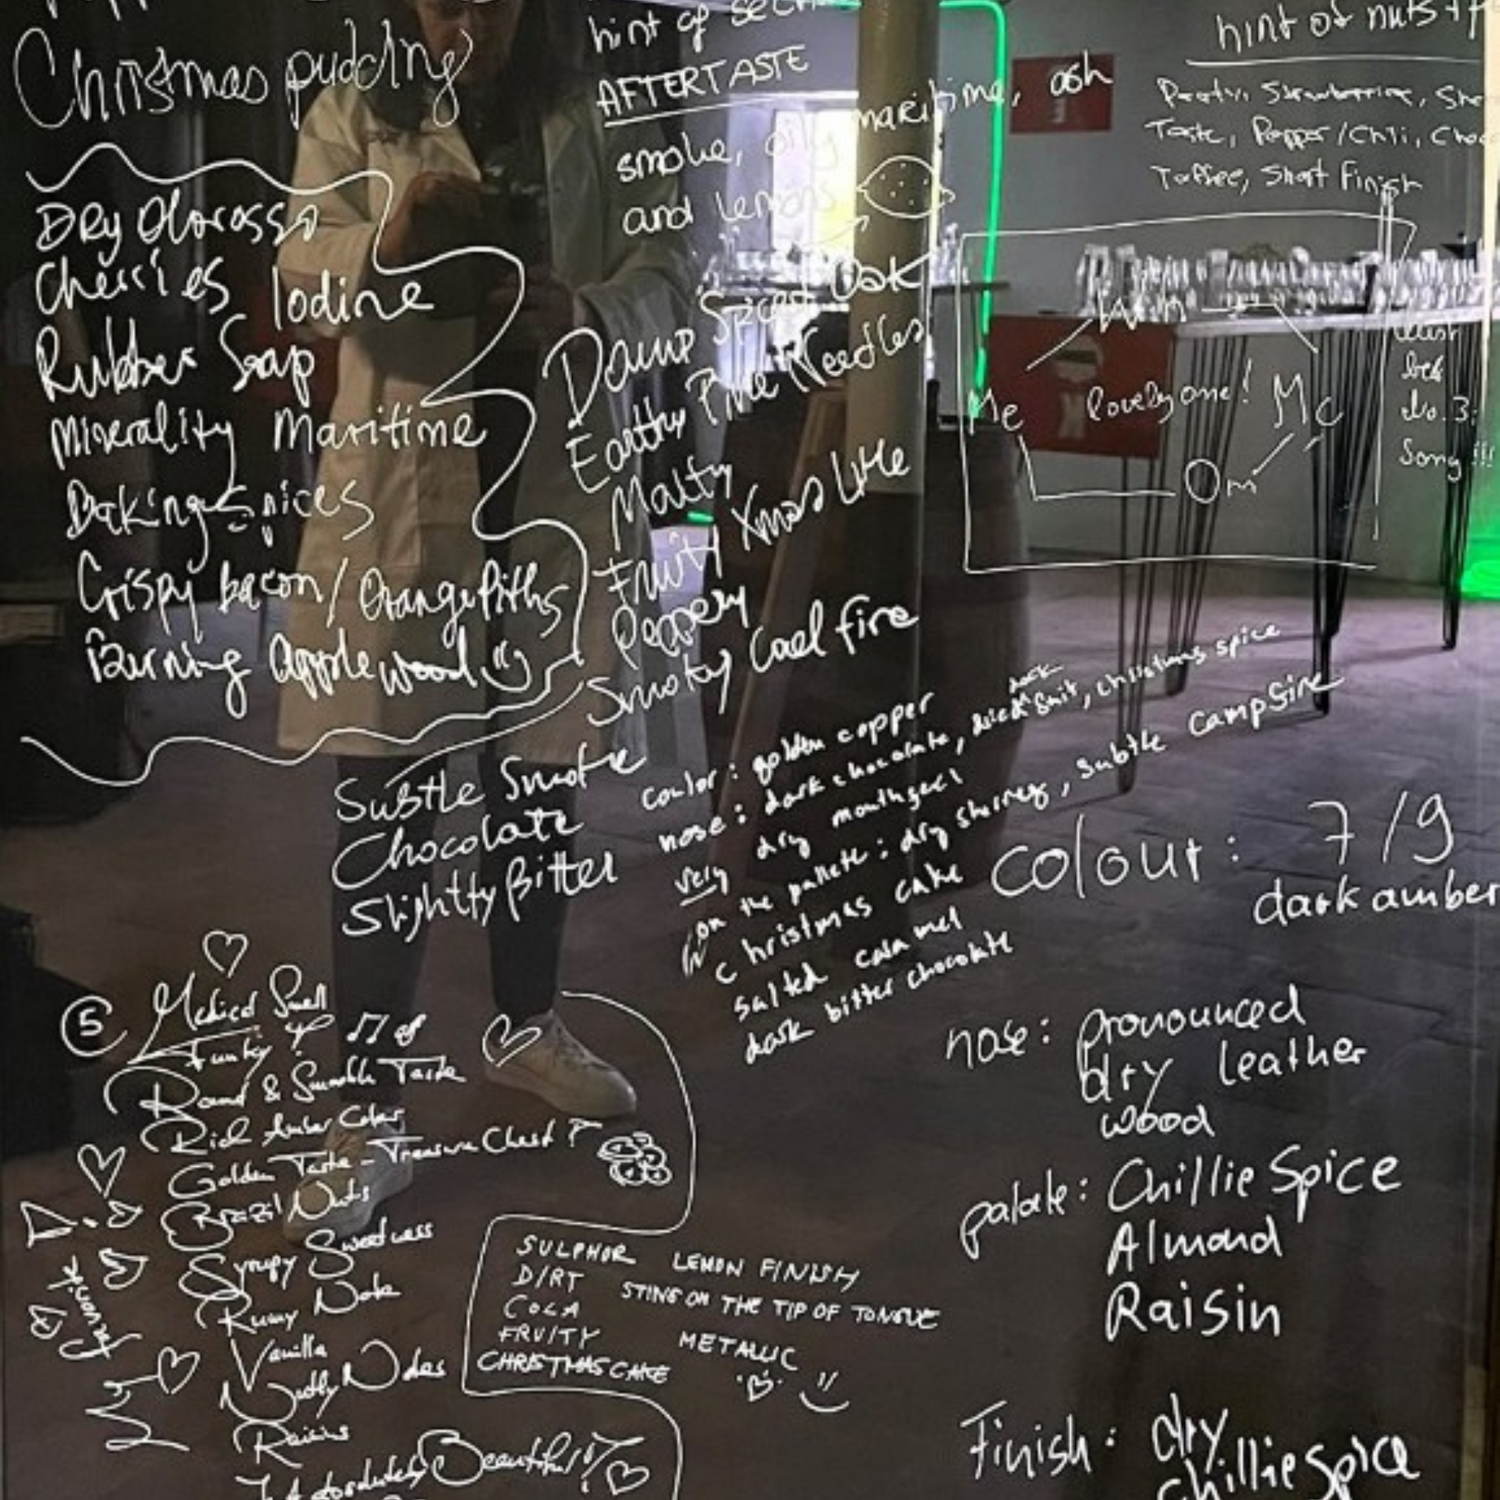 Christmas pudding
Dry Olorosso
Cherries Iodine
Rubber Soap
Minerality Maritime
Baking Spices
Crispy bacon/Orange Piths
Burning Apple wood
hint of
AFTERTASTE
smoke, oily maritime, ash
and lemons
Damp Spiced Oak
Earthy Pine Needles
Malty
Fruity Xmas Like
Peppery
Smoky Coal fire
Subtle Smoke
Chocolate
Slightly Bitter
hint of nuts +
Peaty, Strawberries,
Taste, Pepper/Chili,
Toffee, Short Finish
Me lovely one! Mc
Om
No. 3
Song !!!
coulor: golden copper
nose: dark chocolate, dried dark fruit, christmas spice
very dry mouthfeel
on the pallete: dry sherry, subtle campfire
christmas cake
salted caramel
dark bitter chocolate
Colour: 7/9
dark amber
nose: pronounced
dry leather
wood
palate: Chillie Spice
Almond
Raisin
Finish: dry
Chillie Spice
5 Medical Smell
Funky
Round & Smooth Taste
Rich Amber Color
Golden Taste - Treasure Chest
Brazil Nuts
Syrupy Sweetness
Rummy Note
Vanilla
Nutty Notes
Raisins
Absolutely Beautiful
Favourite
SULPHOR LEMON FINISH
DIRT STING ON THE TIP OF TONGUE
COLA
FRUITY METALLIC
CHRISTMAS CAKE